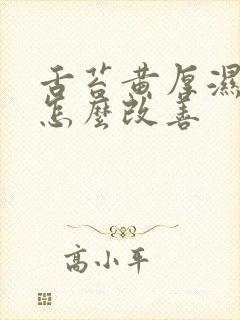 舌苔黄厚濕
怎麽改善
高小平